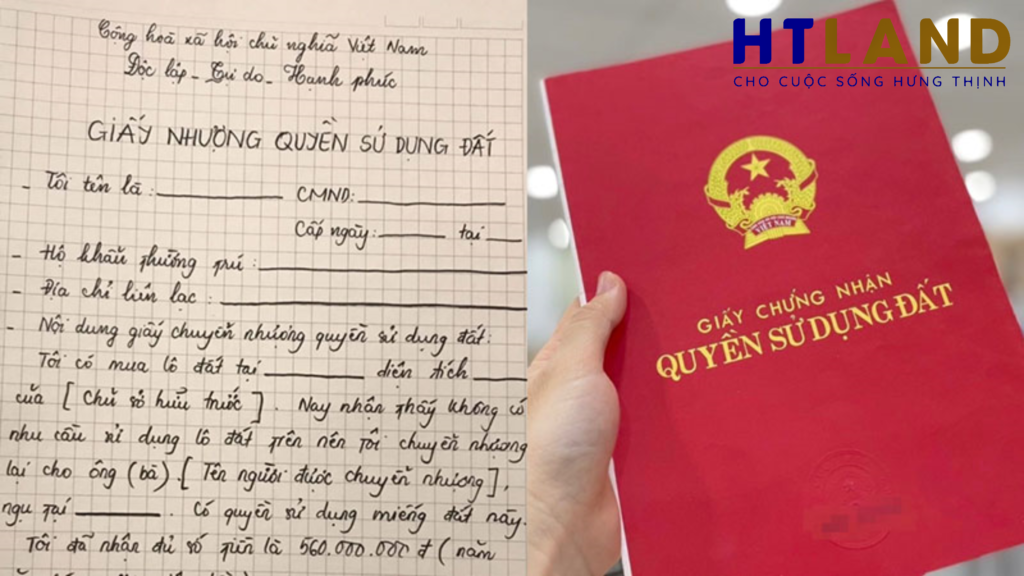 Cộng hoà xã hội chủ nghĩa Việt Nam
Độc lập - Tự do - Hạnh phúc
GIẤY NHƯỢNG QUYỀN SỬ DỤNG ĐẤT
- Tôi tên là: CMND:
Cấp ngày: tại
- Hộ khẩu thường trú:
- Địa chỉ liên lạc:
- Nội dung giấy chuyển nhượng quyền sử dụng đất:
Tôi có mua lô đất tại diện tích
của [Chủ sở hữu trước]. Nay nhận thấy không có
nhu cầu sử dụng lô đất trên nên tôi chuyển nhượng
lại cho ông (bà) [Tên người được chuyển nhượng],
ngụ tại . Có quyền sử dụng miếng đất này.
Tôi đã nhận đủ số tiền là 560.000.000 đ (năm
HTLAND
CHO CUỘC SỐNG HƯNG THỊNH
VIỆT NAM
GIẤY CHỨNG NHẬN
QUYỀN SỬ DỤNG ĐẤT